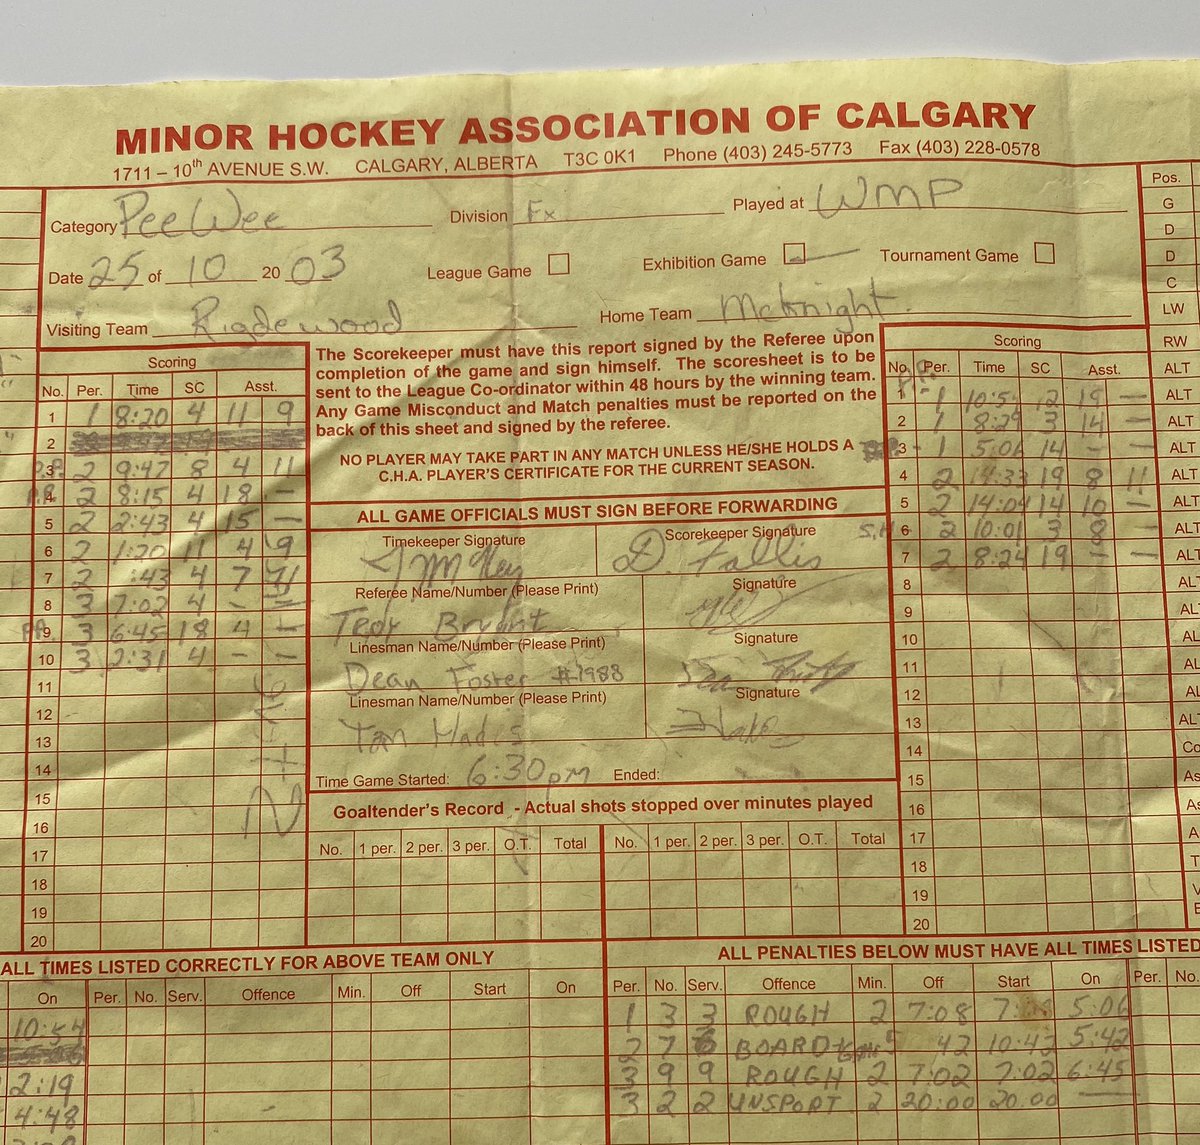 MINOR HOCKEY ASSOCIATION OF CALGARY
1711 – 10th AVENUE S.W. CALGARY, ALBERTA T3C 0K1 Phone (403) 245-5773 Fax (403) 228-0578
Category PeeWee Division Fx Played at WMP
Date 25 of 10 20 03 League Game Exhibition Game Tournament Game
Visiting Team Rigdewood Home Team McKnight
Scoring
No. Per. Time SC Asst.
1 1 8:20 4 11 9
2
P.P. 3 2 9:47 8 4 11
P.P. 4 2 8:15 4 18 -
5 2 2:43 4 15 -
6 2 1:20 11 4 9
7 2 :43 4 7
8 3 7:02 4 -
P.P. 9 3 6:45 18 4 -
10 3 2:31 4 - -
11
12
13
14
15
16
17
18
19
20
The Scorekeeper must have this report signed by the Referee upon
completion of the game and sign himself. The scoresheet is to be
sent to the League Co-ordinator within 48 hours by the winning team.
Any Game Misconduct and Match penalties must be reported on the
back of this sheet and signed by the referee.
NO PLAYER MAY TAKE PART IN ANY MATCH UNLESS HE/SHE HOLDS A
C.H.A. PLAYER'S CERTIFICATE FOR THE CURRENT SEASON.
ALL GAME OFFICIALS MUST SIGN BEFORE FORWARDING
Timekeeper Signature Scorekeeper Signature
D. Fallis
Referee Name/Number (Please Print) Signature
Bryant
Linesman Name/Number (Please Print) Signature
Dean Foster #1988
Linesman Name/Number (Please Print) Signature
Time Game Started: 6:30pm Ended:
Goaltender's Record - Actual shots stopped over minutes played
No. 1 per. 2 per. 3 per. O.T. Total No. 1 per. 2 per. 3 per. O.T. Total
Scoring
No. Per. Time SC Asst.
P.P. 1 1 10:54 12 19 -
2 1 8:29 3 14 -
3 1 5:06 14 - -
4 2 14:33 19 8 11
5 2 14:04 14 10 -
S.H. 6 2 10:01 3 8 -
7 2 8:24 19 - -
8
9
10
11
12
13
14
15
16
17
18
19
20
Pos.
G
D
D
C
LW
RW
ALT
ALT
ALT
ALT
ALT
ALT
ALT
ALL TIMES LISTED CORRECTLY FOR ABOVE TEAM ONLY
On Per. No. Serv. Offence Min. Off Start On
10:54
2:19
4:48
ALL PENALTIES BELOW MUST HAVE ALL TIMES LISTED
Per. No. Serv. Offence Min. Off Start On Per. No.
1 3 3 ROUGH 2 7:08 5:06
2 7 BOARD 5 42 10:42 5:42
3 9 9 ROUGH 2 7:02 7:02 6:45
3 2 2 UNSPORT 2 20:00 20:00